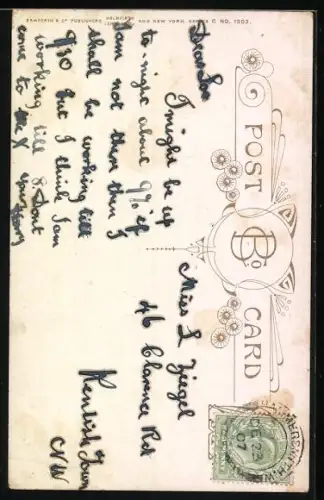 BAMFORTH & Co PUBLISHERS HOLMFIRTH AND NEW YORK. SERIES C. NO. 1503.
POST CARD
B Co
Dear Loo
I might be up
to night about 9 if
I am not then I
shall be working till
9/30 but I think I am
working till 8. Dont
come to me
your
Miss L Ziegel
46 Clarence Rd
Kentish Town
N W
DE 22
07